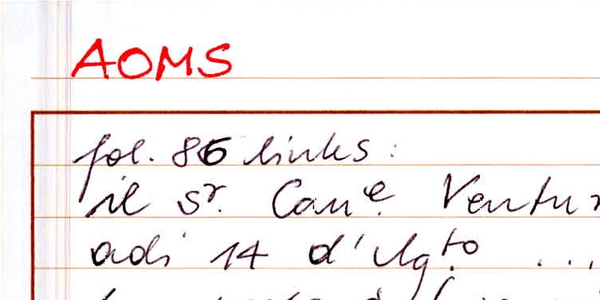 AOMS
fol. 86 links:
il sr. Cane. Ventur
adi 14 d'Ag.to ...